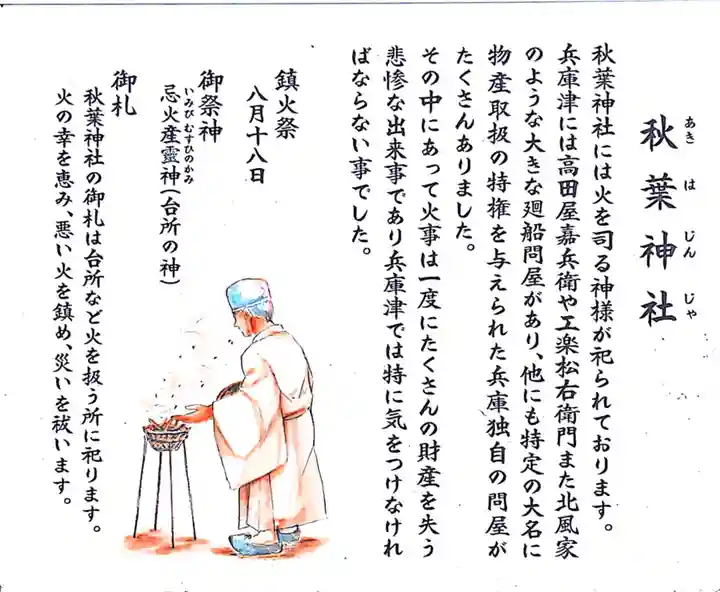 秋葉神社
あきはじんじゃ
秋葉神社には火を司る神様が祀られております。
兵庫津には高田屋嘉兵衛や工楽松右衛門また北風家
のような大きな廻船問屋があり、他にも特定の大名に
物産取扱の特権を与えられた兵庫独自の問屋が
たくさんありました。
その中にあって火事は一度にたくさんの財産を失う
悲惨な出来事であり兵庫津では特に気をつけなけれ
ばならない事でした。
鎮火祭
八月十八日
御祭神
いみびむすひのかみ
忌火産靈神(台所の神)
御札
秋葉神社の御札は台所など火を扱う所に祀ります。
火の幸を恵み、悪い火を鎮め、災いを祓います。